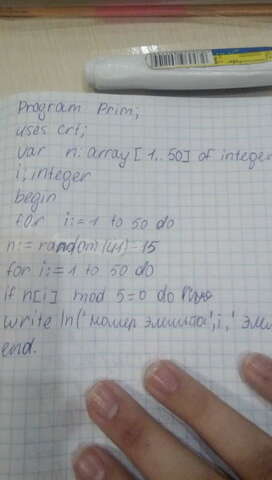 Program Prim;
uses crt;
var n: array [1..50] of integer
i: integer
begin
for i:=1 to 50 do
n:= random(41)-15
for i:=1 to 50 do
if n[i] mod 5=0 do
write ln('номер элемента',i,' эле
end.